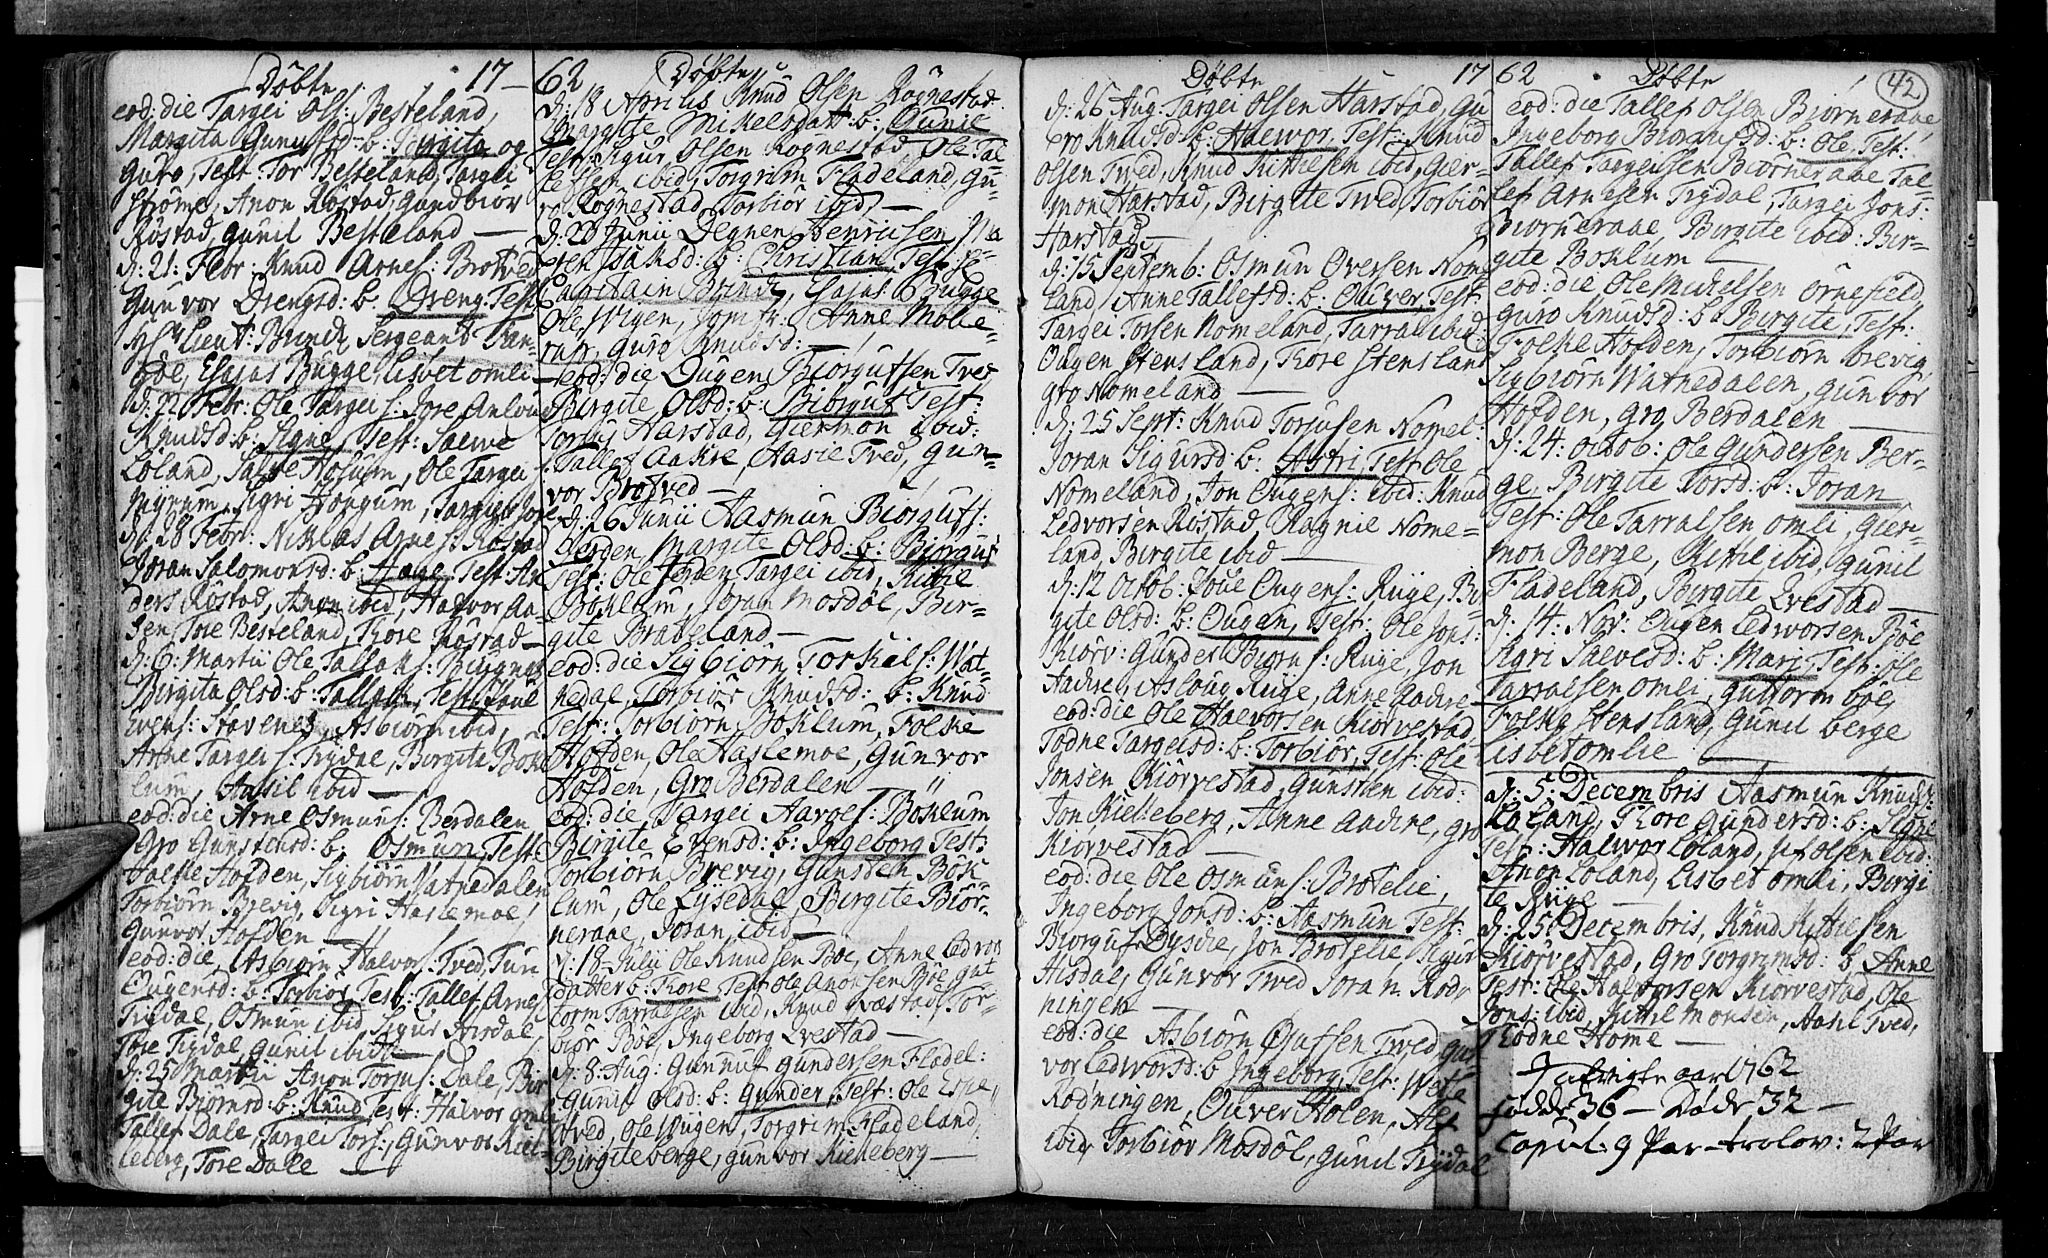 Døbte 17
eod: die Targei Ols: Besteland,
Margita Gunufsd: b: Birgita og
Guro, Test: Tor Besteland, Targei
Hrømè, Anon Røstad, Gundbiør
Røstad, Gunil Besteland —
d: 21: Febr: Knud Arnes: Brotved
Gunvor Drengsd: b: Dreng. Test
Lieut: Brinck, Sergeant
Esaias Bugge, Lisbet omli
d: 22 Febr: Ole Targeis: Tore
Knudsd: b: Signe, Test: Salve
Loland, Salve Hosum, Ole Targei
Sigri Hongum, Targei
d: 28 Febr: Niklas Arnes: Røstad
Joran Salomonsd: b: Aage, Test: An
ders Røstad, Anon ibid, Halvor Aa-
gen, Tore Besteland, Thore Røstad —
d: 6: Martii Ole Tallaks:
Birgita Olsd: b: Tallak, Test:
Evens: Stavenes, Asbiørn ibid,
Arne Targeis: Trydal, Birgite Bøk
lum, Aasil ibid —
eod: die Arne Osmuns: Berdalen
Gro Gunstensd: b: Osmun, Test:
Falke Høfden, Sigbiørn Vatnedalen
Torbiørn Brevig, Sigri Haslemoe,
Gunvor Høfden —
eod: die, Asbiørn Halvors: Tved, Turi
Ougensd: b: Torbior, Test: Tallef Arnes
Trydal, Osmun ibid, Sigur Hisdal,
Tore Trydal, Gunil ibid —
d: 25 Martii Anon Torjus: Dale, Bir
gite Biørnsd: b: Knud, Test: Halvor omli
Tallef Dale, Targei Tors:, Gunvor Kiel-
leberg, Tore Dale —
62 Døbte
d: 18 Aprilis Knud Olsen Rognestad
Margite Mikelsdatt: b: Gunil
Test: Sigur Olsen Rognestad, Ole Tal
lefsen ibid, Torgrim Fladeland, Gu-
ro Rognestad, Torbiør ibid —
d: 23 Junii Degnen Henrichsen,
Isaksd: b: Christian, Test: H:
Capitain Brinck, Esaias Bugge
Ole Wigen, Jomfr: Anne
Guro Knudsd: —
eod: die Ougen Biorgufsen Tved
Birgite Olsd: b: Bibrguf Test:
Torjus Harstad, Giermon ibid:
Tallef Aakre, Aasie Tved, Gun-
vor Brotved —
d: 26 Junii Aasmun Biorgufs:
Herden Margite Olsd: b: Biorguf
Test: Ole Herden Targei ibid, Kittil
Bøklum, Joran Mosdøl, Bir-
gite Brabeland —
eod: die Sigbiørn Torkals: Wat-
nedal, Torbiør Knudsd: b: Knud
Test: Torbiørn Boklum, Folke
Høfden, Ole Haslemoe, Gunvor
Høfden, Gro Berdalen —
eod: die Targei Aarges: Bøklum
Birgite Evensd: b: Ingeborg Test:
Torbiørn Brevig, Gunsten Bøk
lum, Ole Lysedal, Birgite Biør-
neraae, Joran ibid —
d: 18 Julii Ole Knudsen Bøe, Anne Ledvors
datter b: Thore Test Ole Anonsen Bøe, Gut
torm Tarralsen ibid, Knud Qvæstad, Tor-
biør Bøe, Ingeborg Evestad —
d: 8: Aug: Gunnuf Gundersen Fladel:
Gunil Olsd: b: Gunder, Test: Ole
tved, Ole Wiigen, Torgrim Fladeland,
Birgite berge, Gunvor Kielleberg —
Døbte 17
d: 26 Aug: Targei Olsen Harstad,
Gro Knudsd: b: Halvor, Test: Knud
Olsen Tved, Knud Kittelsen ibid, Gier-
mon Harstad, Birgite Tved, Torbiør
Harstad —
d: 15 Septemb: Osmun Oversen Nome
land, Anne Tallefsd: b: Ouver, Test:
Targei Torsen Nomeland, Tarral ibid:
Ougen Stensland, Thore Stensland
Gro Nomeland —
d: 25 Sept: Knud Torjusen Nomel:
Joran Sigursd: b: Astri, Test: Ole
Nomeland, Jon Ougens: ibid: Knud
Ledvorsen Røstad, Ragnie Nome-
land, Birgite ibid —
d: 12 Octob: Ougens: Ruge, Bir
gite Olsd: b: Ougen, Test: Ole Jons:
Kiørv: Gunder Biørns: Ruge, Jon
Aadne, Aslaug Ruge, Anne Aadne
eod: die Ole Halvorsen Kiørvestad
Todne Targeisd: b: Torbiør, Test: Ole
Jonsen Kiørvestad, Gunsten ibid:
Jon Kielleberg, Anne Aadne, Gro
Kiørvestad —
eod: die Ole Osmuns: Brotelie,
Ingeborg Jonsd: b: Aasmun Test:
Biorguf Dysdie, Jon Brotelie Sigur
Hisdal, Gunvor Tved Joran Rød,
ningen —
eod: die Asbiørn Tved Gun
vor Ledvorsd: b: Ingeborg, Test:
Rødningen, Ouver Holen, Alf
ibid, Torbiør Mosdøl, Gunil Trydal
62 Døbte
42
eod: die Tallef Olsen Biørneraae
Ingeborg Biørnsd: b: Ole, Test:
Tallef Targeisen Biørneraae Tal-
lef Arnesen Trydal, Targei Jons:
Biørneraae, Birgite ibid: Bir-
gite Boklum —
eod: die Ole Mickelsen Ørnefield,
Guro Knudsd: b: Birgite, Test:
Folke Høfden, Torbiørn brevig,
Sigbiørn Watnedalen, Gunvor
Høfden, Gro Berdalen —
d: 24: octob: Ole Gundersen Ber-
ge, Birgite Torsd: b: Joran
Test: Ole Tarralsen omli, Gier-
mon Berge, Kittil ibid, Gunil
Fladeland, Birgite Evestad —
d: 14: Nov: Ougen Ledvorsen Bøe
Sigri Salvesd: b: Mari, Test: Ole
Tarralsen omli, Guttorm bøe,
Folke Stensland, Gunil berge
Lisbet omlie —
d: 5: Decembris Aasmun Knuds:
Loland, Thore Gundersd: b: Signe
Test: Halvor Loland, Olsen ibid:
Anon Loland, Lisbet omli, Birgi
te Ruge —
d: 25 Decembris, Knud Kittilsen
Kiørvestad, Gro Torgrimsd: b: Anne
Test: Ole Halvorsen Kiørvestad, Ole
Jons: ibid, Kittil Monsen, Aasil Tved,
Todne Home —
afvigte aar 1762
fødde 36 — Døde 32 —
Copul: 9 Par — trolov: 2 Par